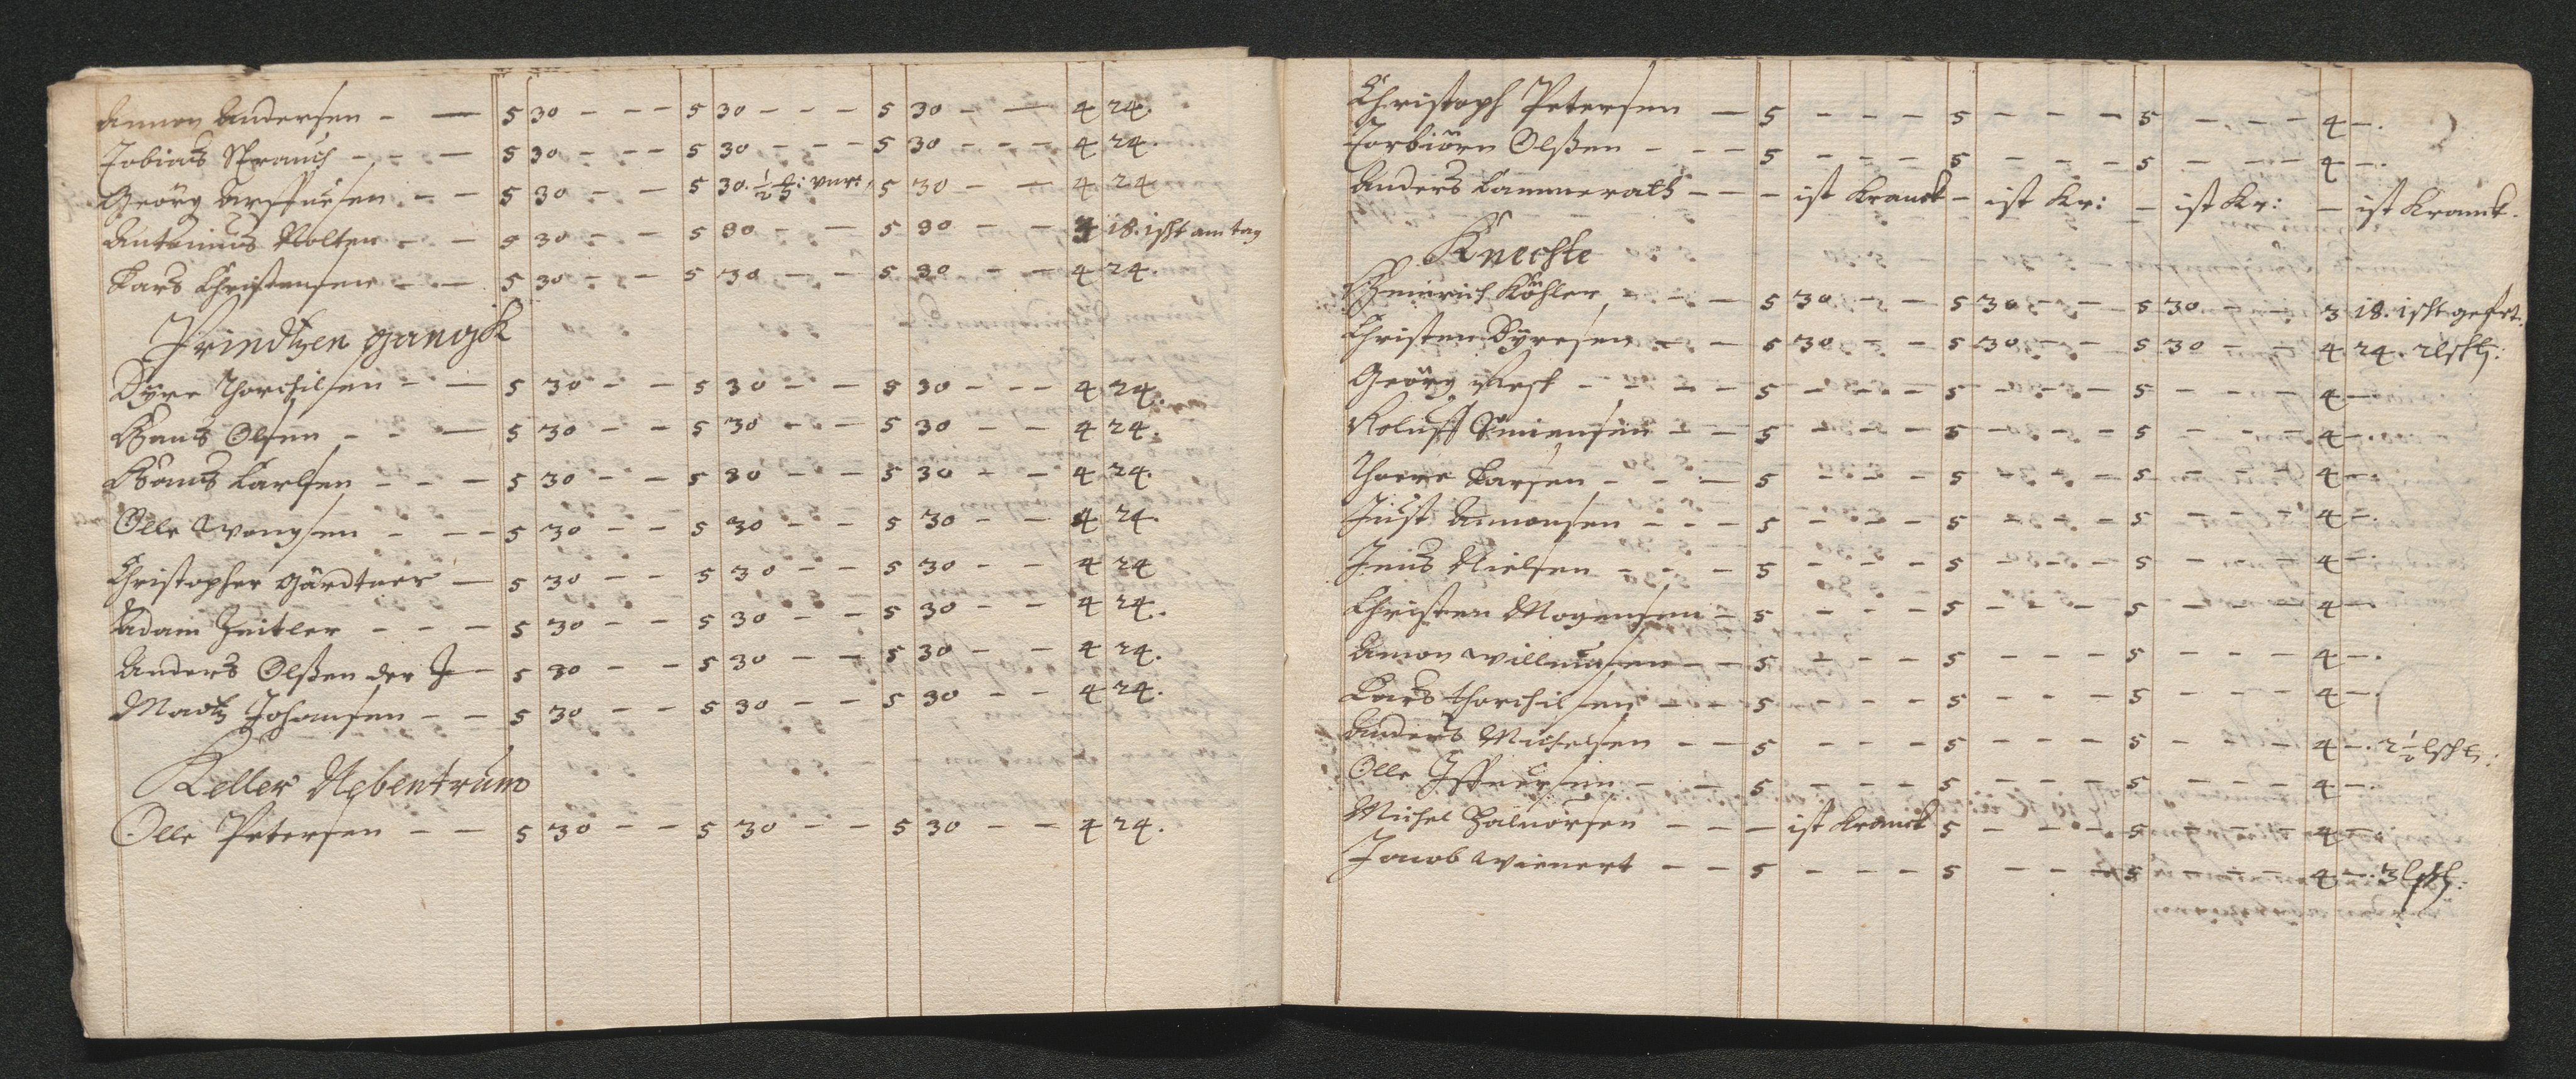 Amon Andersen - — 5 30 - - - 5 30 - - - 5 30 - — 4 24.
Tobias Strauch - - — 5 30 - - - 5 30 - - - 5 30 - - - 4 24.
Geörg - - 5 30 - - 5 30. ½ 5 30 - — 4 24
Antonius Nolter - - 5 30 - - 5 30 - - 5 30 - - 4 18. 1 scht am tag
Lars Christensen - — 5 30 - - 5 30 - - 5 30 - - 4 24.
Printzen gangk
Byre Thorchilsen - — 5 30 - - 5 30 - - 5 30 - - - 4 24.
Hans Olsen - - — 5 30 - - 5 30 - - 5 30 - - 4 24.
Hans Carlsen - - - 5 30 - - 5 30 - - 5 30 - - 4 24.
Olle - - - 5 30 - - 5 30 - - 5 30 - - 4 24.
Christopher Gärdtner — 5 30 - - 5 30 - - 5 30 - - 4 24
Adam Zeitler - - - 5 30 - - 5 30 - - 5 30 - - 4 24.
Anders Olßen der J — 5 30 - - 5 30 - - 5 30 - - 4 24.
Madtz Johansen - - 5 30 - - 5 30 - - 5 30 - - 4 24.
Keller Nebentrum
Olle Petersen - - 5 30 - - 5 30 - - 5 30 - - 4 24.
Christoph Petersen — 5 - - - 5 - - - 5 - - - 4 -.
Torbiörn Olßen - - - 5 - - - 5 - - - 5 - - - 4 -.
Anders Cammerath - - - ist Kranck - ist Kr: - ist Kr: - ist Kranck.
Knechte
Heinrich Köhler - - - 5 30 - - 5 30 - - 5 30 - - 3 18. 1 scht
Christen Byresen - - 5 30 - - 5 30 - - 5 30 - - 4 24.
Geörg - - - - 5 - - - 5 - - - 5 - - - 4 -
Roluff Simensen - - 5 - - - 5 - - - 5 - - - 4 -.
Thorre Larsen - - — 5 - - - 5 - - - 5 - - - 4 -.
Just Amonsen - - - 5 - - - 5 - - - 5 - - - 4 -.
Jens Nielsen - - - 5 - - - 5 - - - 5 - - - 4 -.
Christen Mogensen - 5 - - - 5 - - - 5 - - - 4 -.
Amon Willumsen - - 5 - - - 5 - - - 5 - - - 4 -.
Lars Thorchilsen - - 5 - - - 5 - - - 5 - - - 4 -.
Anders Michelsen - - 5 - - - 5 - - - 5 - - - 4 -. 2½
Olle - - 5 - - - 5 - - - 5 - - - 4 -.
Michel Halvorsen - - - ist Kranck 5 - - - 5 - - - 4 -.
Jacob Wienert - - 5 - - - 5 - - - 5 - - - 4 -. 3